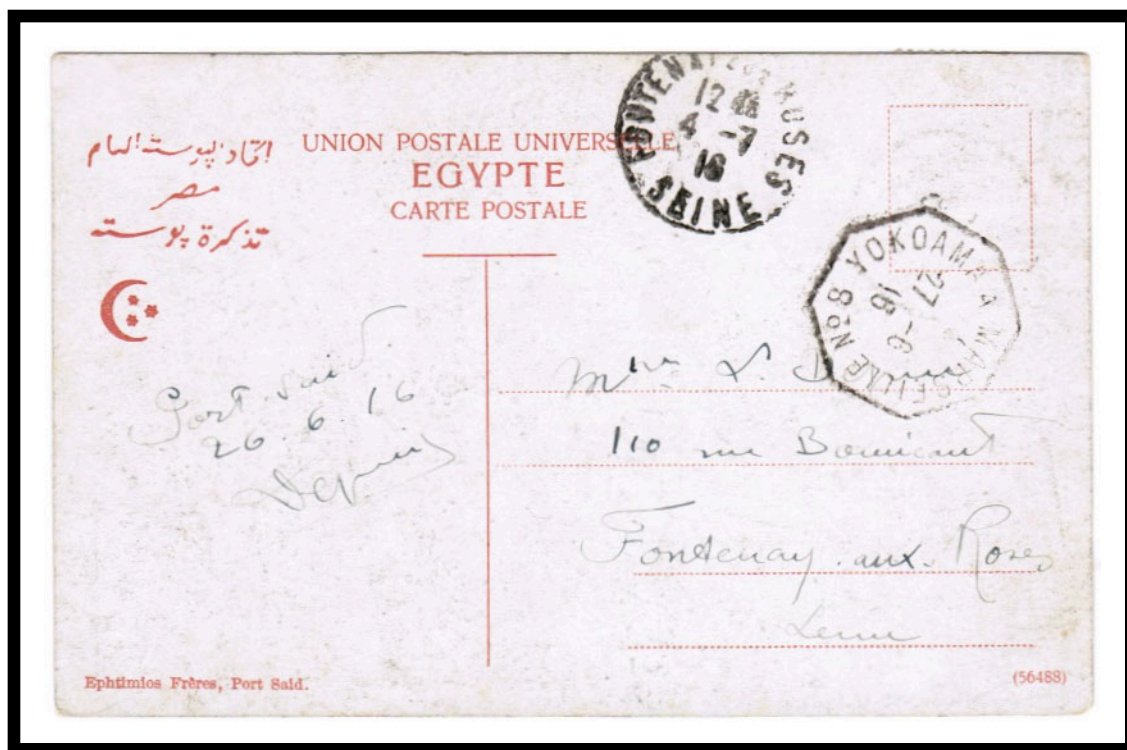 اتحاد البوسته العام
مصر
تذكرة پوسته
UNION POSTALE UNIVERSELLE
EGYPTE
CARTE POSTALE
FONTENAY AUX ROSES
12
4 -7
16
SEINE
YOKOAMA A MARSEILLE No 8
27
-6
16
Port Said
26.6.16
Mme L.
110 rue Boucicaut
Fontenay-aux-Roses
Seine
Ephtimios Frères, Port Said.
(56488)